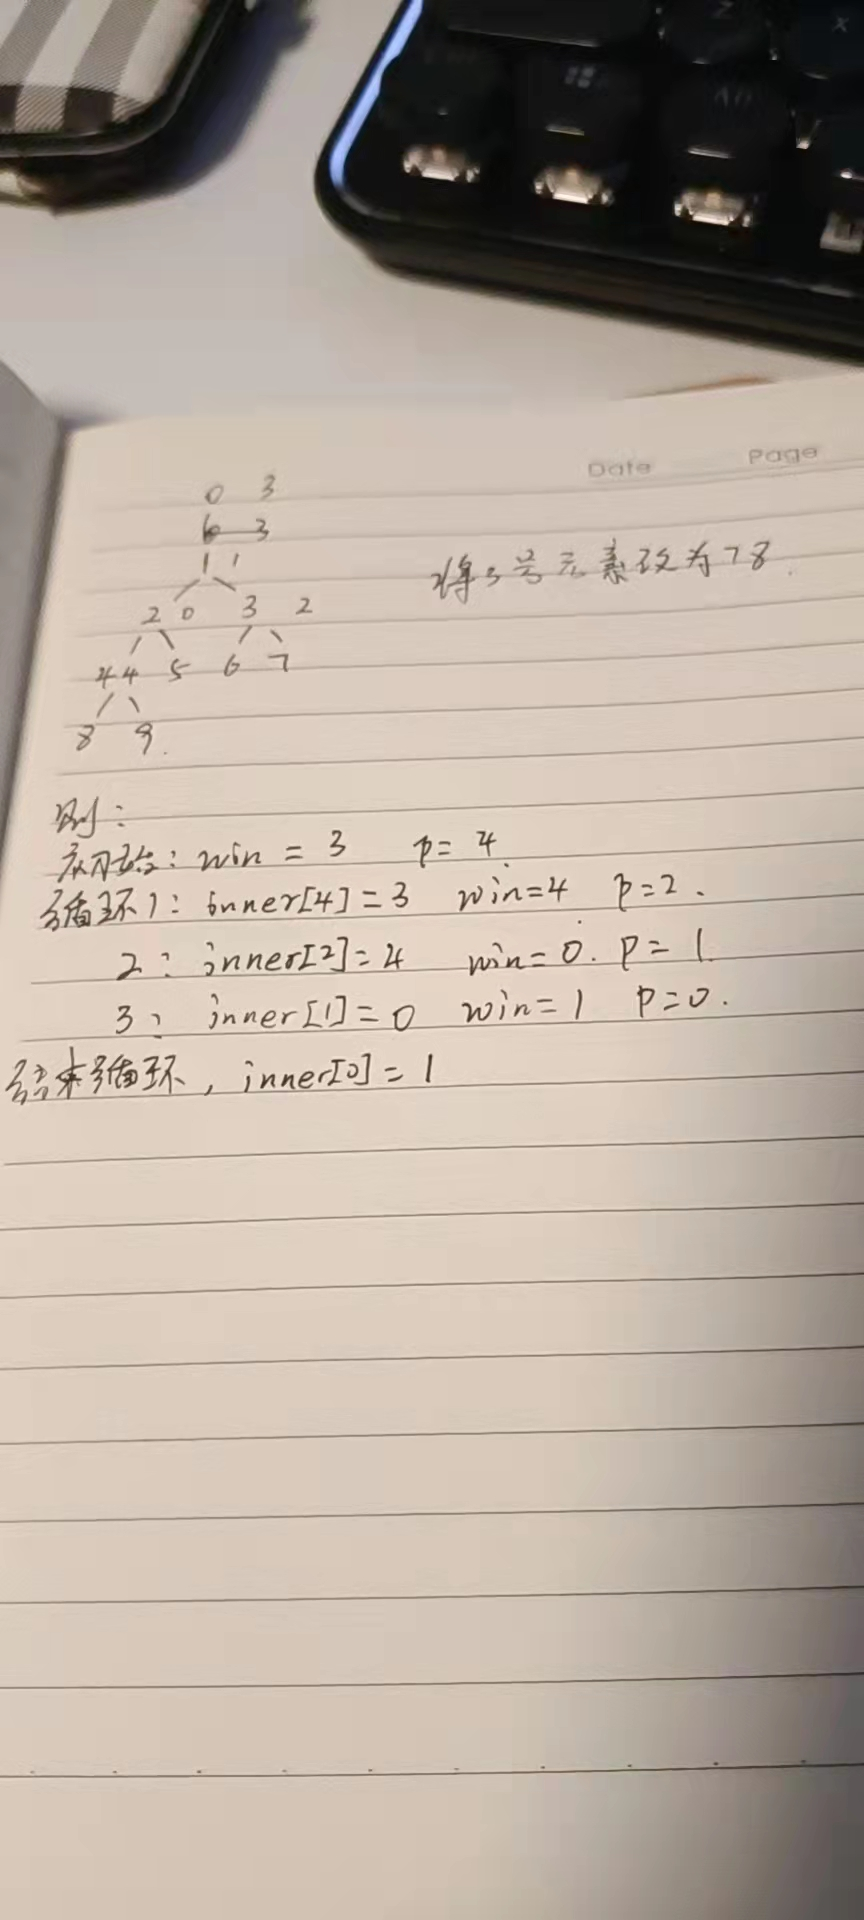 Date Page
0 3
6 3
1 1
将3号元素改为78.
2 0 3 2
4 4 5 6 7
8 9.
则:
初始: win = 3 p= 4.
循环1: inner[4]=3 win=4 p=2.
2: inner[2]=4 win=0. p=1.
3: inner[1]=0 win=1 p=0.
结束循环, inner[0]=1